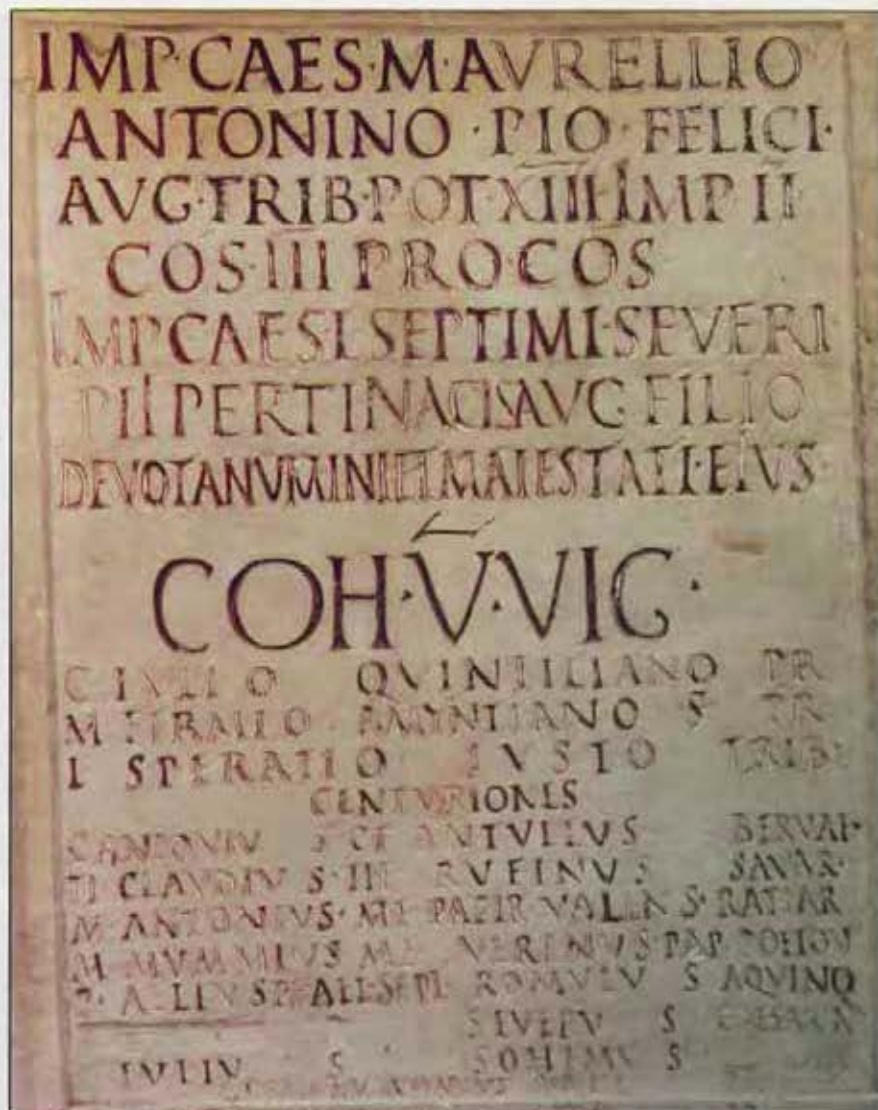 IMP·CAES·M·AVRELLIO
ANTONINO·PIO·FELICI·
AVG·TRIB·POT·XIII·IMP II
COS·III PRO·COS
IMP CAES L SEPTIMI·SEVERI
PII PERTINACIS AVG FILIO
DEVOTA NVMINI ET MAIESTATI·EIVS·
COH·V·VIG·
C IVLIO QVINTILIANO PR
M S PR
L SPERATIO IVSTO TRIB
CENTVRIONES
C ANTONIV S ANTVLLVS
TI CLAVDIV S RVFINVS SAVAR
M ANTONIVS VALENS RATIAR
M MVMMIVS VERENVS PAP
P·AELIVS ROMVLV S AQVINQ
S
IVLIV S SOHIMV S